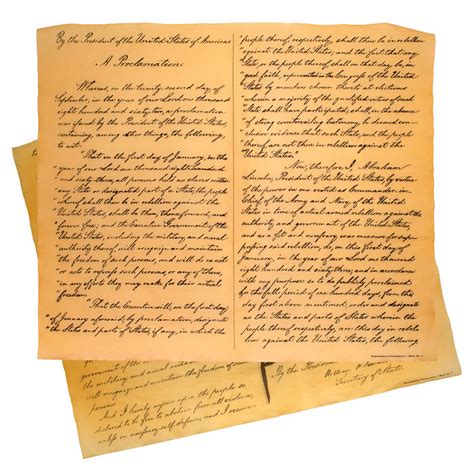 By the President of the United States of America:
A Proclamation.
Whereas, on the twenty-second day of
September, in the year of our Lord one thousand
eight hundred and sixty-two, a proclamation
was issued by the President of the United States,
containing, among other things, the following,
to wit:
"That on the first day of January, in the
year of our Lord one thousand eight hundred
and sixty-three, all persons held as slaves within
any State or designated part of a State, the people
whereof shall then be in rebellion against the
United States, shall be then, thenceforward, and
forever free; and the Executive Government of the
United States, including the military and naval
authority thereof, will recognize and maintain
the freedom of such persons, and will do no act
or acts to repress such persons, or any of them,
in any efforts they may make for their actual
freedom.
"That the Executive will, on the first day
of January aforesaid, by proclamation, designate
the States and parts of States, if any, in which the
people thereof, respectively, shall then be in rebellion
against the United States; and the fact that any
State, or the people thereof, shall on that day be, in
good faith, represented in the Congress of the United
States by members chosen thereto at elections
wherein a majority of the qualified voters of such
State shall have participated, shall, in the absence
of strong countervailing testimony, be deemed con-
clusive evidence that such State, and the people
thereof, are not then in rebellion against the
United States."
Now, therefore I, Abraham
Lincoln, President of the United States, by virtue
of the power in me vested as Commander-in-
Chief of the Army and Navy of the United
States in time of actual armed rebellion against the
authority and government of the United States,
and as a fit and necessary war measure for sup-
pressing said rebellion, do, on this first day of
January, in the year of our Lord one thousand
eight hundred and sixty-three, and in accordance
with my purpose so to do publicly proclaimed
for the full period of one hundred days, from the
day first above mentioned, order and designate
as the States and parts of States wherein the
people thereof respectively, are this day in rebel-
lion against the United States, the following
government of the
military and naval
will recognize and maintain
the freedom of
And I hereby enjoin upon the people so
declared to be free to abstain from all violence,
unless in necessary self-defence; and I recom
By the President:
William H. Seward
Secretary of State.